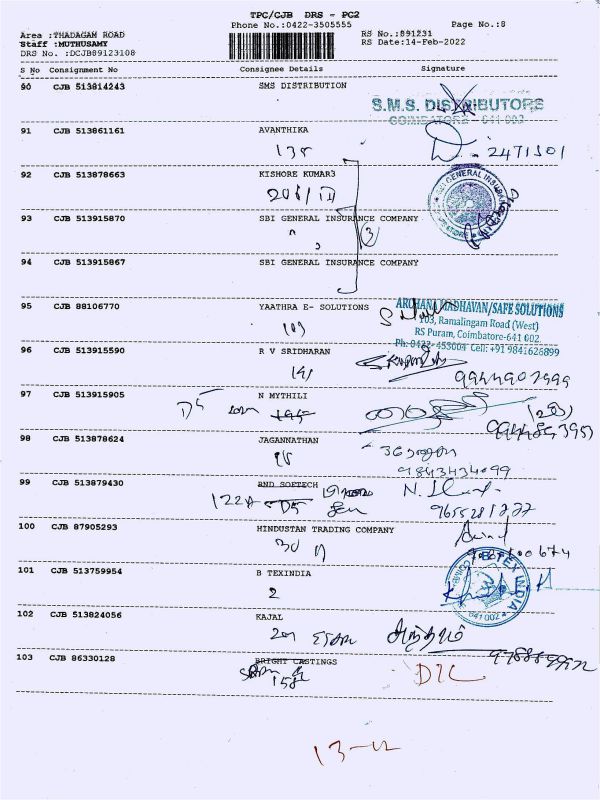 TPC/CJB DRS - PC2
Phone No.:0422-3505555
Page No.:8
Area :THADAGAM ROAD
Staff :MUTHUSAMY
DRS No. :DCJB89123108
RS No.:891231
RS Date:14-Feb-2022
S No Consignment No Consignee Details Signature
90 CJB 513814243 SMS DISTRIBUTION
S.M.S. DISTRIBUTORS
COIMBATORE - 641 003
91 CJB 513861161 AVANTHIKA
138 2471501
92 CJB 513878663 KISHORE KUMAR3
93 CJB 513915870 SBI GENERAL INSURANCE COMPANY
3
94 CJB 513915867 SBI GENERAL INSURANCE COMPANY
95 CJB 88106770 YAATHRA E- SOLUTIONS
ARCHANA MADHAVAN/SAFE SOLUTIONS
103, Ramalingam Road (West)
RS Puram, Coimbatore-641 002.
Ph: 0422- 453004 Cell: +91 9841626899
96 CJB 513915590 R V SRIDHARAN
9944907999
97 CJB 513915905 N MYTHILI
98 CJB 513878624 JAGANNATHAN
9843434099
99 CJB 513879430 RND SOFTECH
122A
100 CJB 87905293 HINDUSTAN TRADING COMPANY
101 CJB 513759954 B TEXINDIA
2
BTEX INDIA
641 002
102 CJB 513824056 KAJAL
103 CJB 86330128 BRIGHT CASTINGS
158 DTC